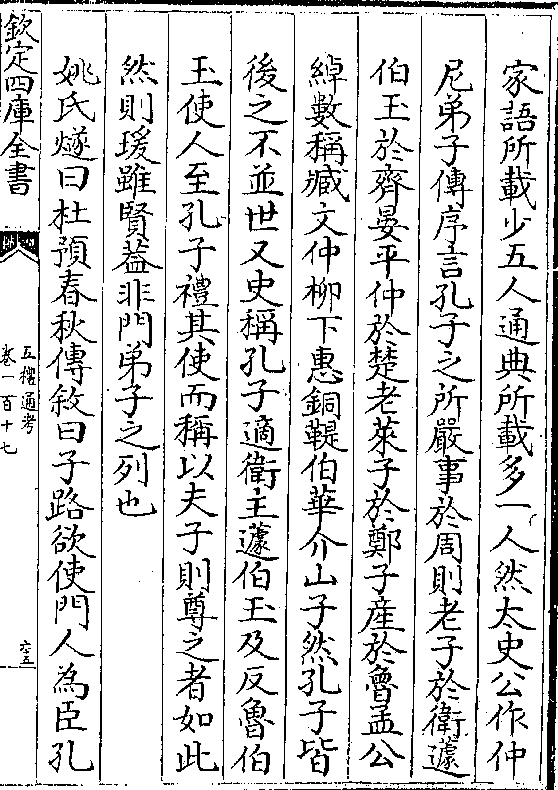 家語所載少五人通典所載多一人然太史公作仲
尼弟子傳序言孔子之所嚴事於周則老子於衛蘧
伯玉於齊晏平仲於楚老萊子於鄭子產於魯孟公
綽數稱臧文仲柳下惠銅鞮伯華介山子然孔子皆
後之不並世又史稱孔子適衛主蘧伯玉及反魯伯
玉使人至孔子禮其使而稱以夫子則尊之者如此
然則瑗雖賢葢非門弟子之列也
姚氏燧曰杜預春秋傳敘曰子路欲使門人為臣孔
欽定四庫全書
五禮通考
卷一百十七
六五